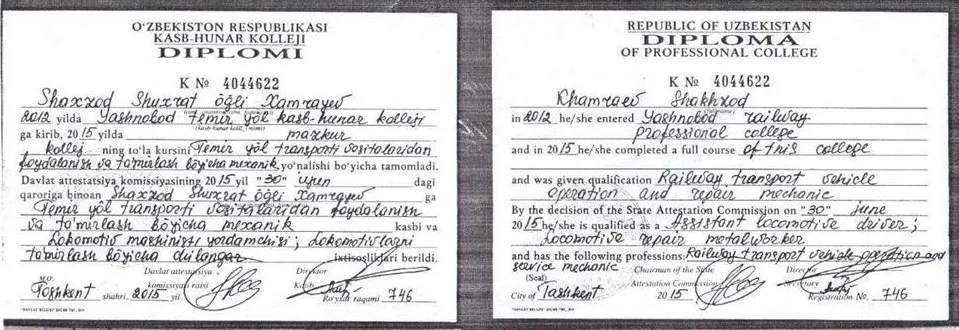 O‘ZBEKISTON RESPUBLIKASI
KASB-HUNAR KOLLEJI
DIPLOMI
K № 4044622
Shaxzod Shuxrat õğli Xamrayev
2012 yilda Yashnobod temir yõl kasb-hunar kolleji
ga kirib, 2015 yilda mazkur
kollej ning to‘la kursini Temir yõl transporti vositalaridan
foydalanish va ta'mirlash bõyicha mexanik yo‘nalishi bo‘yicha tamomladi.
Davlat attestatsiya komissiyasining 2015 yil "30" iyun dagi
qaroriga binoan Shaxzod Shuxrat õğli Xamrayev ga
Temir yõl transporti vositalaridan foydalanish
va ta'mirlash bõyicha mexanik kasbi va
Lokomotiv mashinisti yordamchisi; Lokomotivlarni
ta'mirlash bõyicha chilangar ixtisosliklari berildi.
M.O‘. Davlat attestatsiya komissiyasi raisi Direktor
Kotib
Toshkent shahri. 2015 yil. Ro‘yxat raqami 746
REPUBLIC OF UZBEKISTAN
DIPLOMA
OF PROFESSIONAL COLLEGE
K № 4044622
Khamraev Shakhzod
in 2012 he/she entered Yashnobod railway
professional college
and in 2015 he/she completed a full course of this college
and was given qualification Railway transport vehicle
operation and repair mechanic
By the decision of the State Attestation Commission on "30" june
2015 he/she is qualified as a Assistant locomotive driver;
Locomotive repair metalworker
and has the following professions: Railway transport vehicle operation and
service mechanic Chairman of the State Director
(Seal) Attestation Commission Secretary
City of Tashkent 2015 Registration No. 746